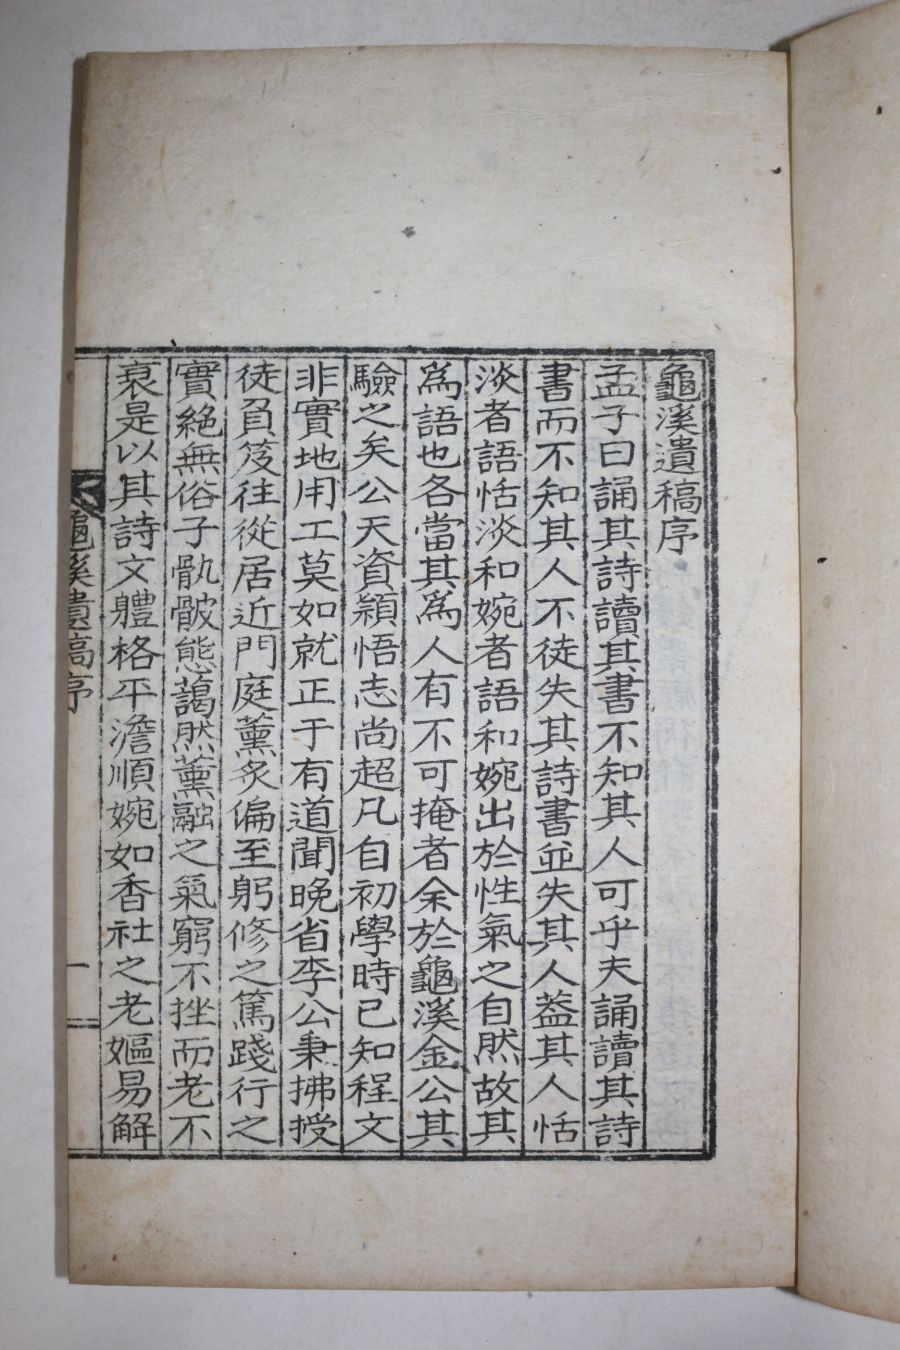 龜溪遺稿序
孟子曰誦其詩讀其書不知其人可乎夫誦讀其詩
書而不知其人不徒失其詩書並失其人葢其人恬
淡者語恬淡和婉者語和婉出於性氣之自然故其
爲語也各當其爲人有不可掩者余於龜溪金公其
驗之矣公天資穎悟志尚超凡自初學時已知程文
非實地用工莫如就正于有道聞晩省李公秉拂授
徒負笈往從居近門庭薰炙偏至躬修之篤踐行之
實絶無俗子骩骳態藹然薰融之氣窮不挫而老不
衰是以其詩文軆格平澹順婉如香社之老嫗易解
龜溪遺稿序
一